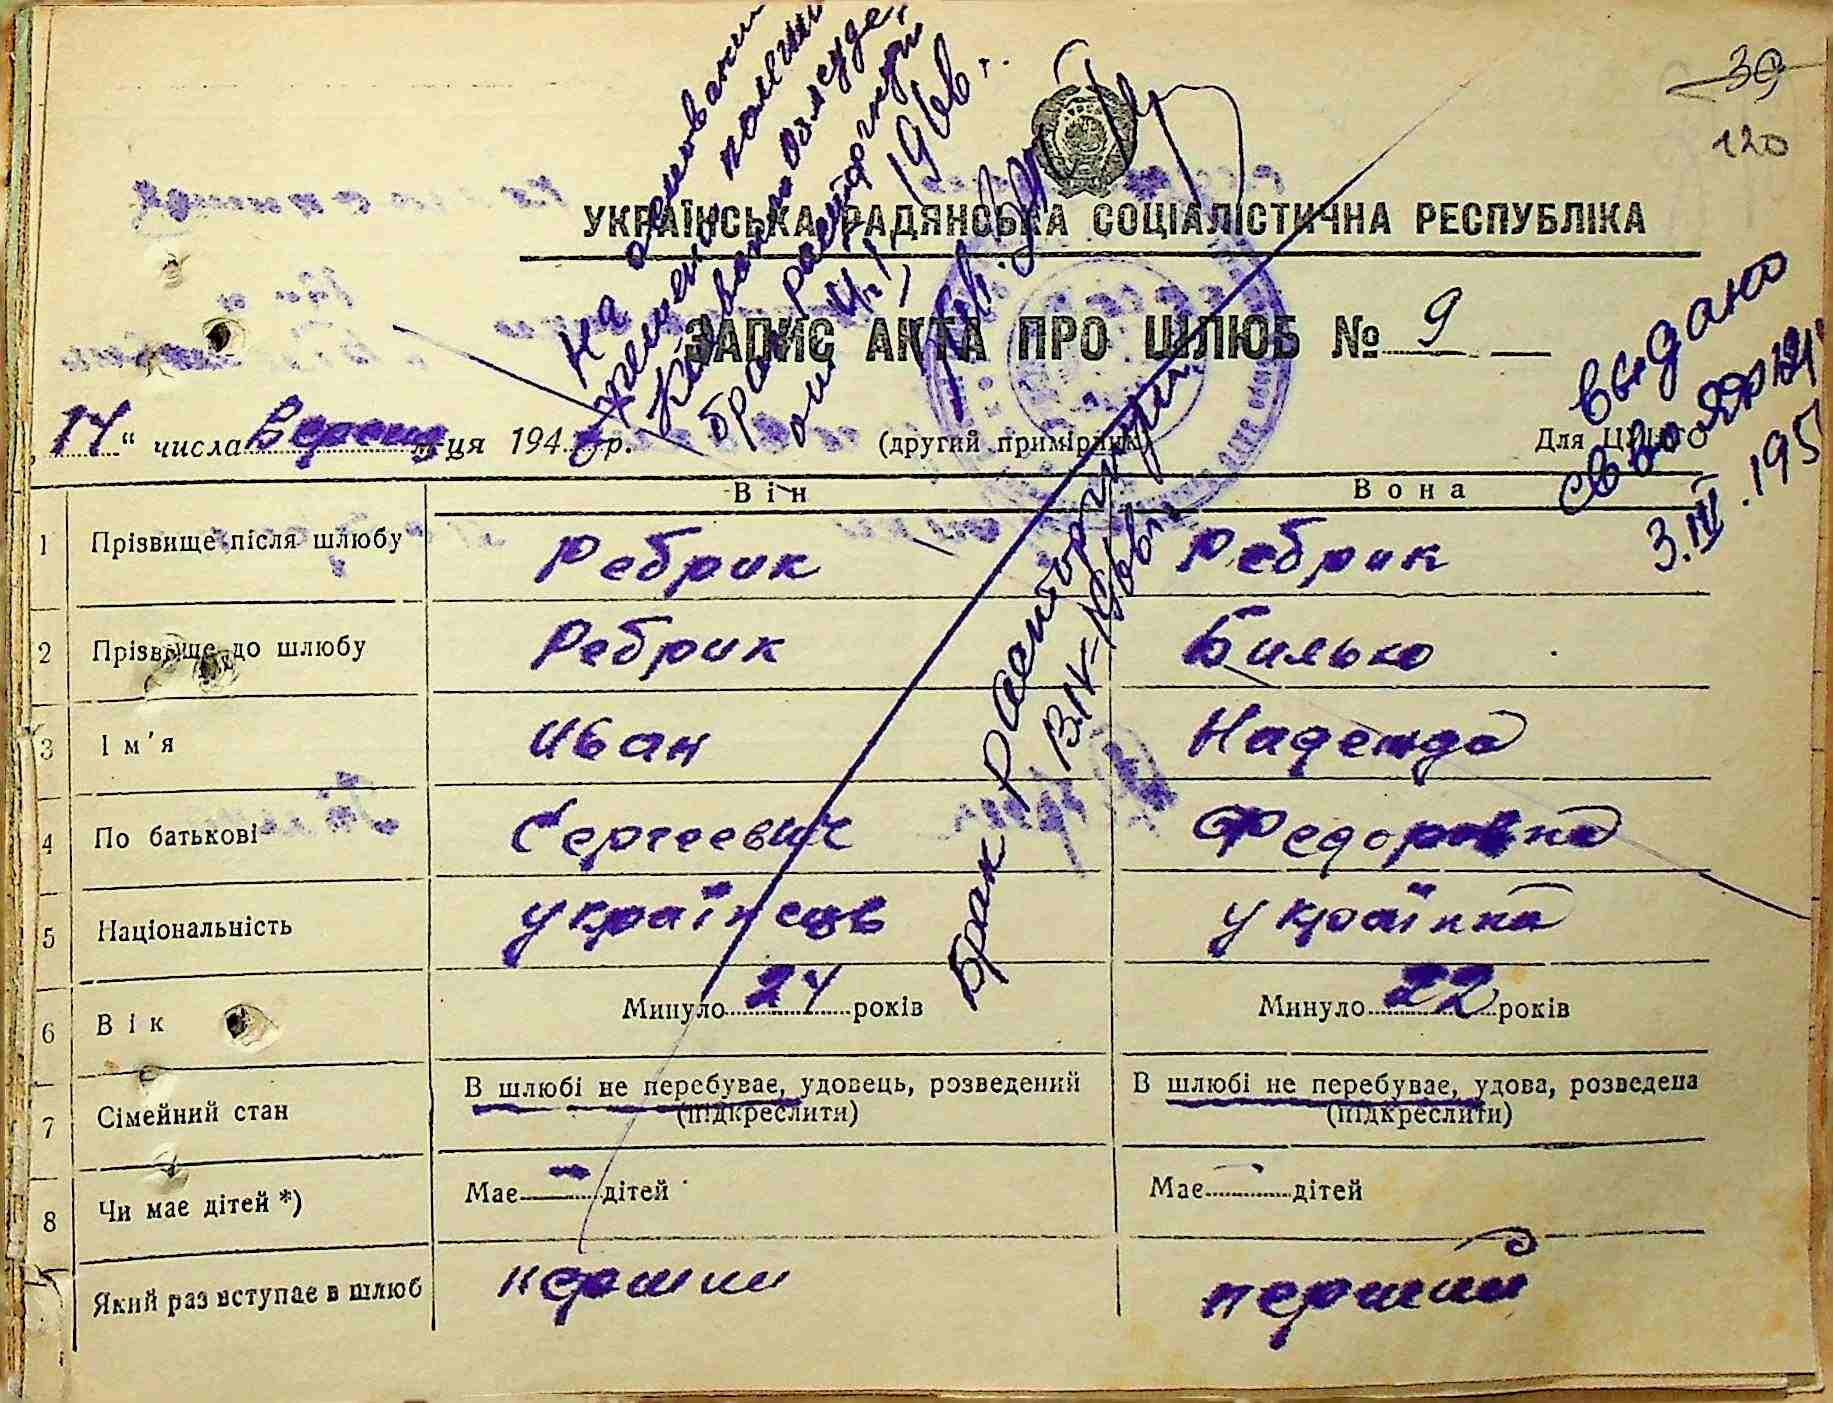 39
120
УКРАЇНСЬКА РАДЯНСЬКА СОЦІАЛІСТИЧНА РЕСПУБЛІКА
ЗАПИС АКТА ПРО ШЛЮБ № 9
На основании
решения
брак расторгнут
1966 г.
выдано
3.III.195
14 " числа м-ця 194 р.
(другий примірник)
Для
Він Вона
1 Прізвище після шлюбу Ребрик Ребрик
2 Прізвище до шлюбу Ребрик Билько
3 Ім'я Иван Надежда
4 По батькові Сергеевич Федоровна
5 Національність українець українка
6 Вік Минуло 24 років Минуло 22 років
7 Сімейний стан В шлюбі не перебуває, удовець, розведений В шлюбі не перебуває, удова, розведена
(підкреслити) (підкреслити)
8 Чи має дітей *) Має — дітей Має — дітей
Який раз вступає в шлюб перший
Брак расторгнут